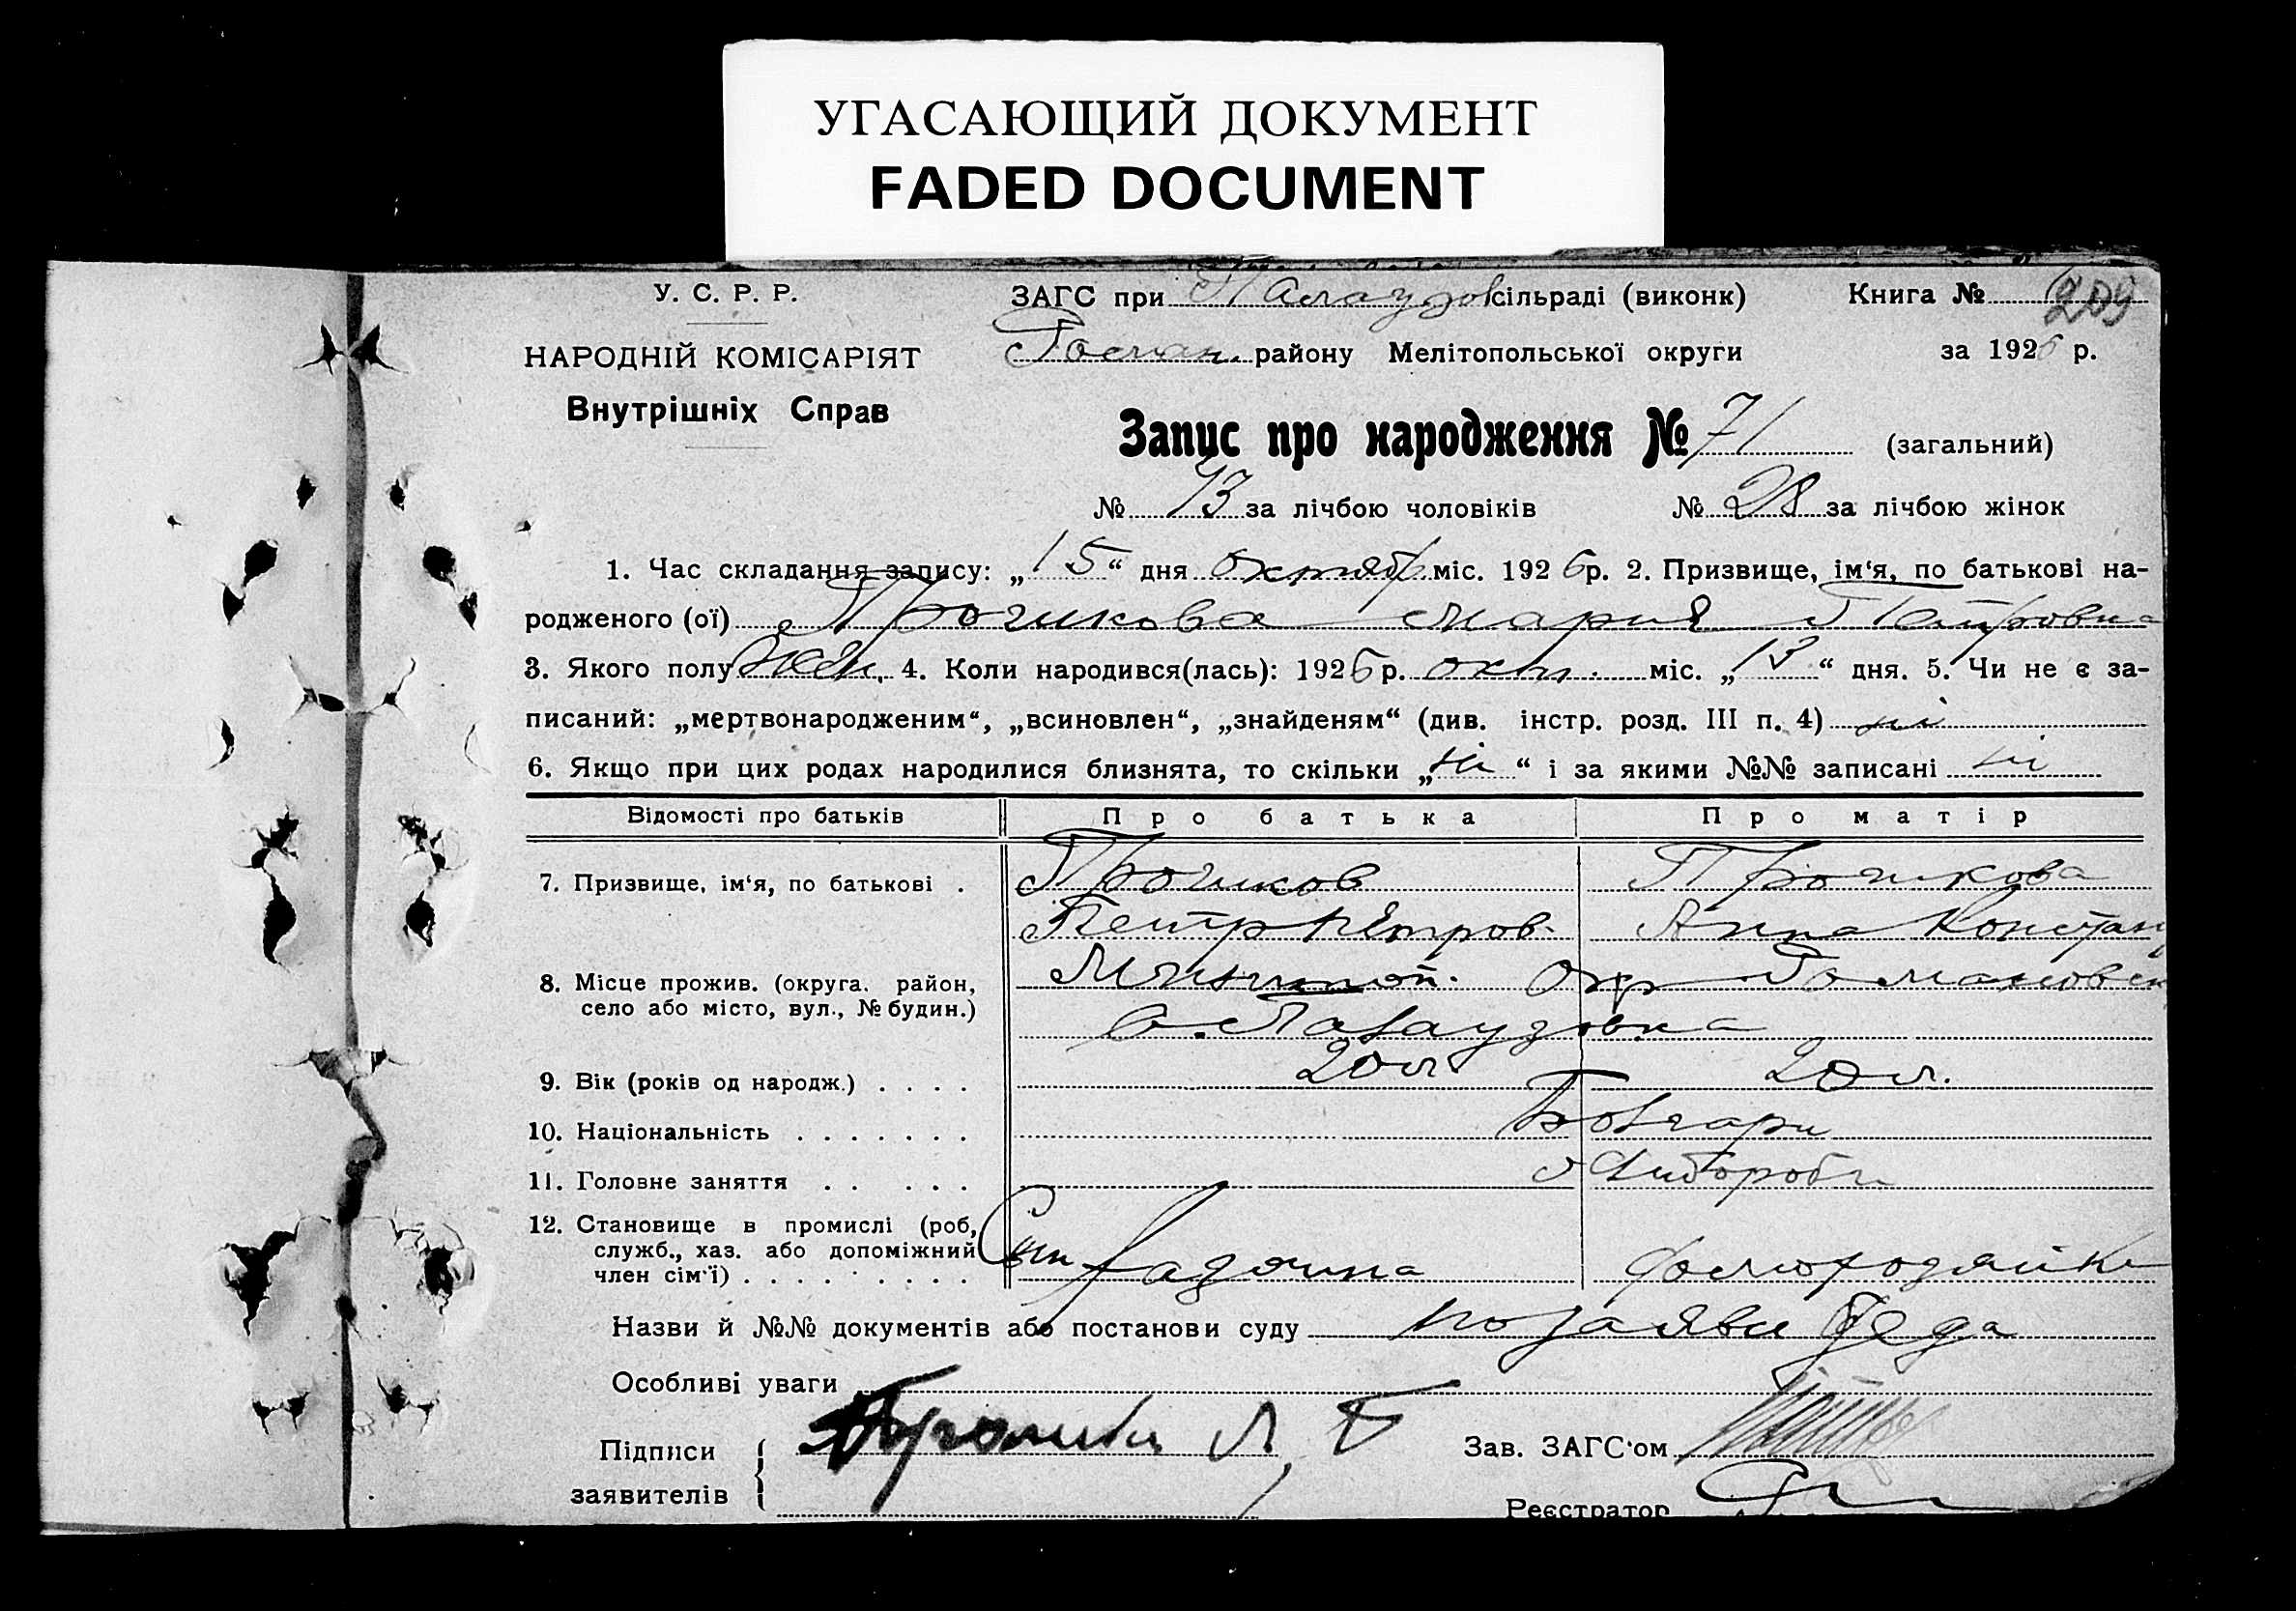 УГАСАЮЩИЙ ДОКУМЕНТ
FADED DOCUMENT
У. С. Р. Р.
НАРОДНІЙ КОМІСАРІЯТ
Внутрішніх Справ
ЗАГС при Палаузов сільраді (виконк)
Роман. району Мелітопольської округи
Книга № 209
за 1926 р.
Запис про народження № 71 (загальний)
№ 43 за лічбою чоловіків № 28 за лічбою жінок
1. Час складання запису: „15“ дня октябр міс. 1926 р. 2. Призвище, ім‘я, по батькові на-
родженого (ої) Мария Петровна
3. Якого полу жен. 4. Коли народився(лась): 1926 р. окт. міс. „13“ дня. 5. Чи не є за-
писаний: „мертвонародженим“, „всиновлен“, „знайденям“ (див. інстр. розд. III п. 4) ні
6. Якщо при цих родах народилися близнята, то скільки „ні“ і за якими №№ записані ні
Відомості про батьків Про батька Про матір
7. Призвище, ім‘я, по батькові .
Петр Петров. Анна Констан
8. Місце прожив. (округа, район, село або місто, вул., № будин.) Окр Романовск
с. Палаузовка
9. Вік (років од народж.) . . . . 20 л 20 л.
10. Національність . . . . . . . Болгари
11. Головне заняття . . . . . Хлібороби
12. Становище в промислі (роб, служб., хаз. або допоміжний член сім‘ї) . . . . . . . . . Сын домохозяйк
Назви й №№ документів або постанови суду по заяви деда
Особливі уваги
Підписи
заявителів
Зав. ЗАГС‘ом
Реєстратор